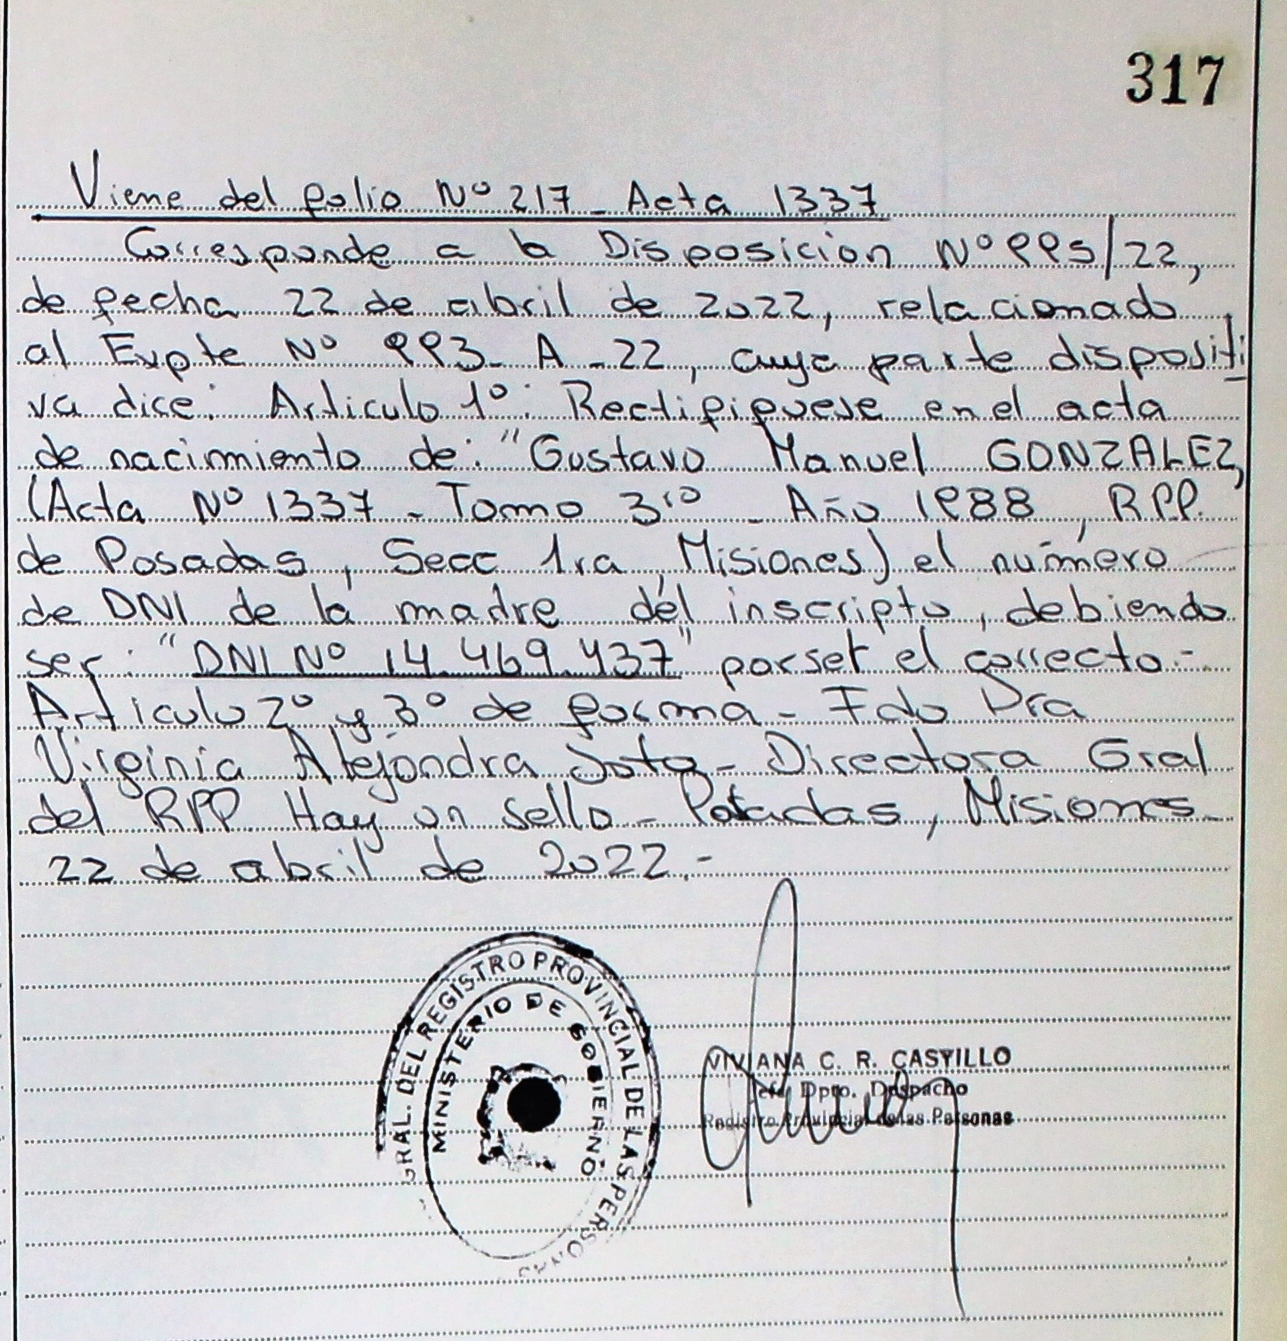 317
Viene del folio Nº 217 - Acta 1337
Corresponde a la Disposición Nº 995/22,
de fecha 22 de abril de 2022, relacionado
al Expte Nº 993 - A - 22, cuya parte dispositi
va dice: Articulo 1º: Rectifiquese en el acta
de nacimiento de: "Gustavo Manuel GONZALEZ,
(Acta Nº 1337 - Tomo 3ro - Año 1988, RPP.
de Posadas, Secc 1ra, Misiones) el número
de DNI de la madre del inscripto, debiendo
ser: "DNI Nº 14.469.437" por ser el correcto.-
Articulo 2º y 3º de forma - Fdo Dra
Virginia Alejandra Soto - Directora Gral
del RPP. Hay un sello - Posadas, Misiones -
22 de abril de 2022.-
GRAL. DEL REGISTRO PROVINCIAL DE LAS PERSONAS
MINISTERIO DE GOBIERNO
VIVIANA C. R. CASTILLO
Jefa Dpto. Despacho
Registro Provincial de las Personas